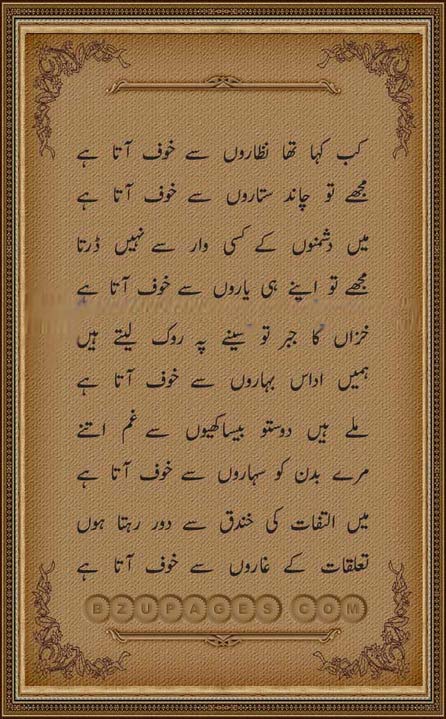 کب کہا تھا نظاروں سے خوف آتا ہے
مجھے تو چاند ستاروں سے خوف آتا ہے
میں دشمنوں کے کسی وار سے نہیں ڈرتا
مجھے تو اپنے ہی یاروں سے خوف آتا ہے
خزاں کا جبر تو سینے پہ روک لیتے ہیں
ہمیں اداس بہاروں سے خوف آتا ہے
ملے ہیں دوستو بیساکھیوں سے غم اتنے
مرے بدن کو سہاروں سے خوف آتا ہے
میں التفات کی خندق سے دور رہتا ہوں
تعلقات کے غاروں سے خوف آتا ہے
BZUPAGES.COM